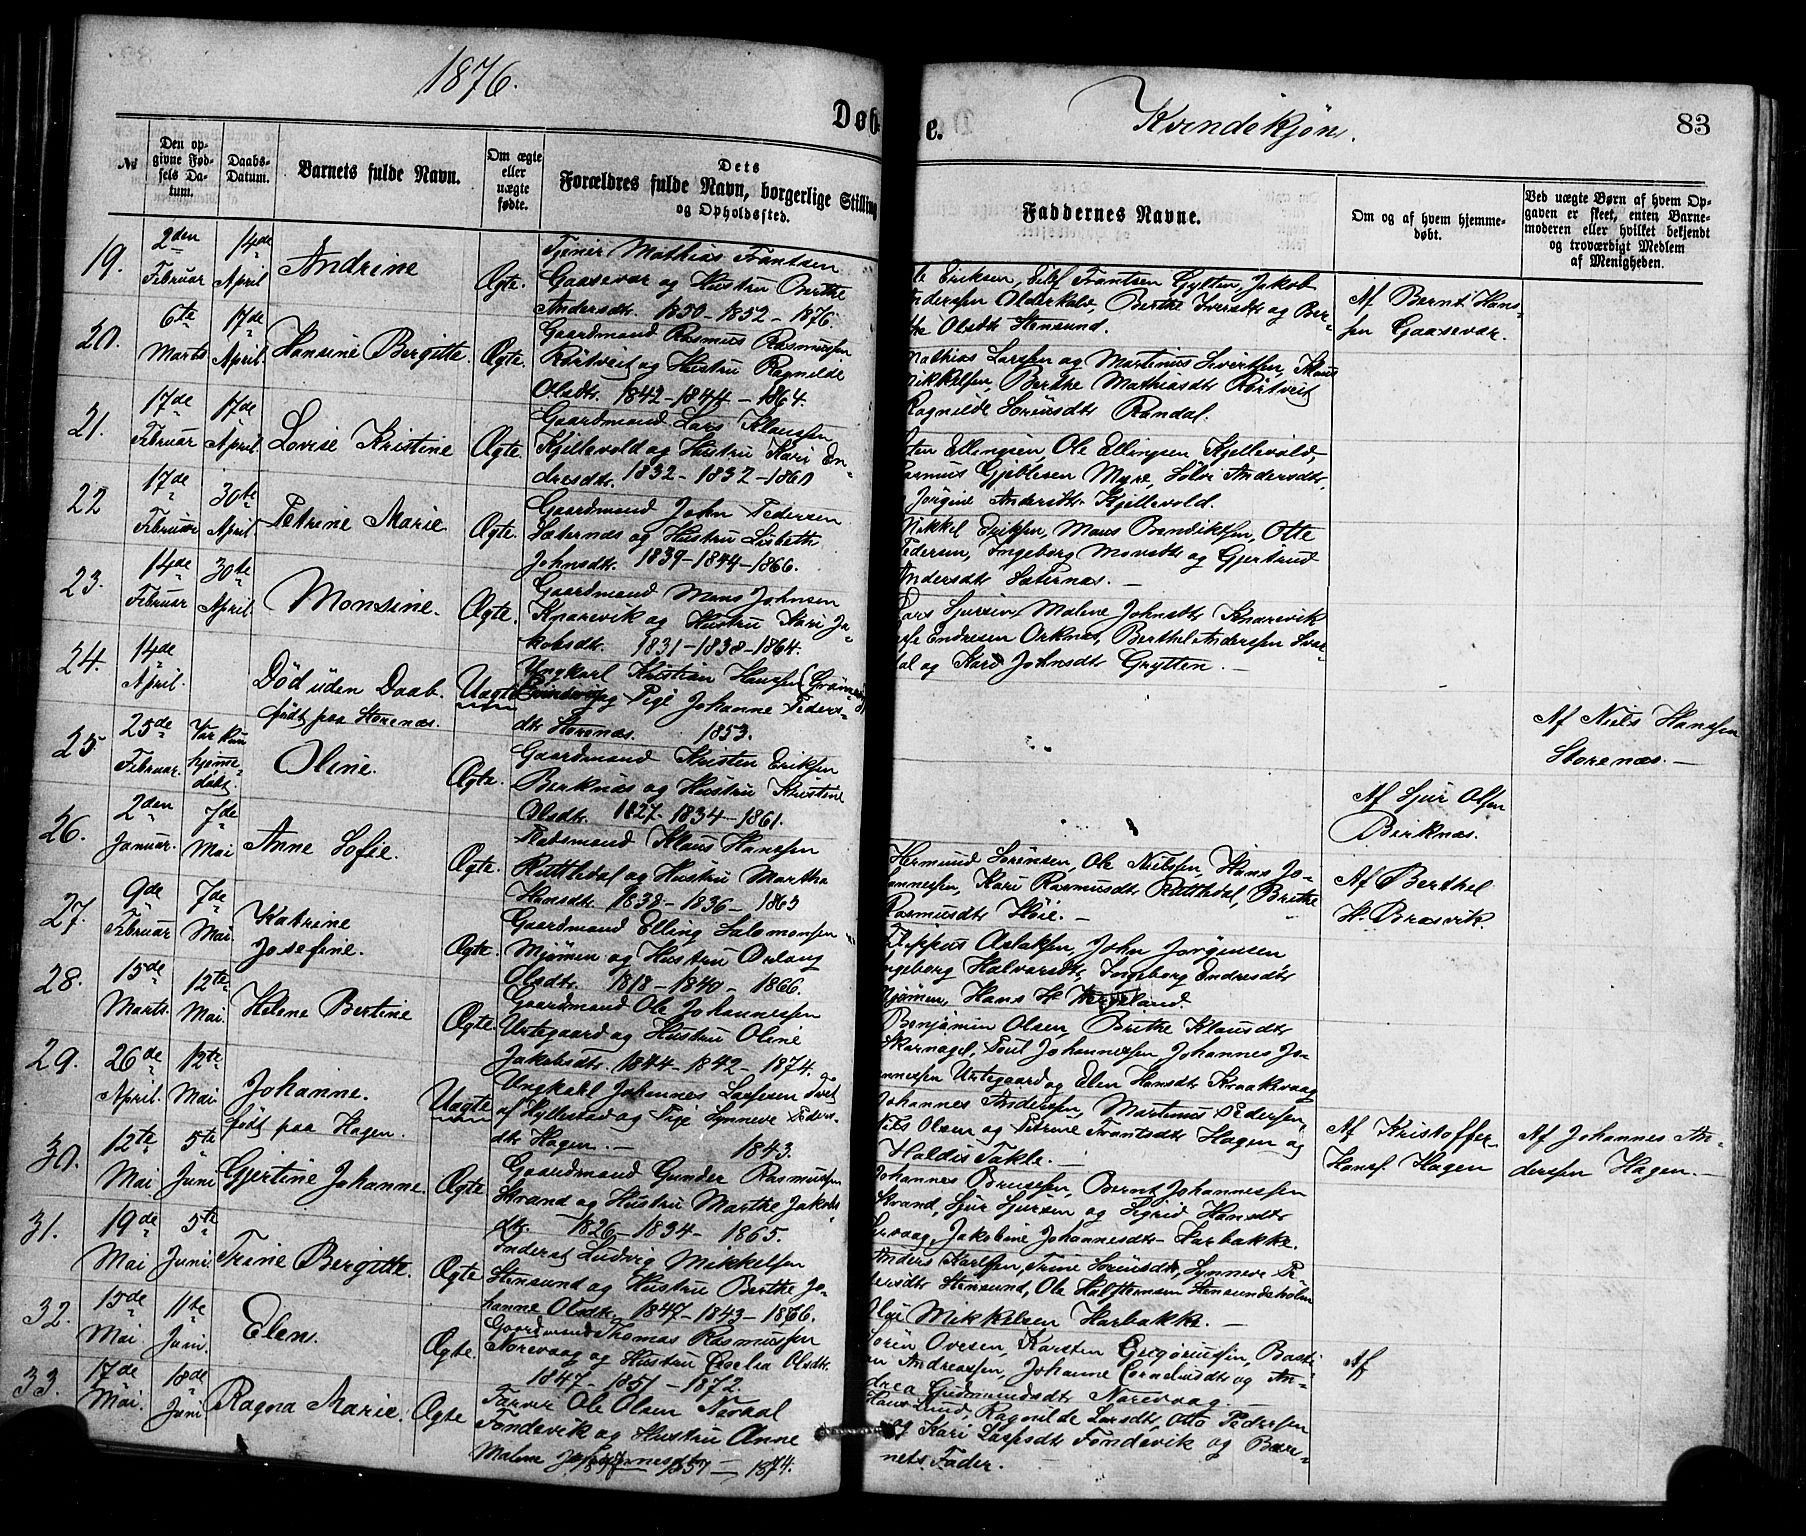 1876.
Døb
e.
Kvindekjøn.
83
№
Den op-
givne Fød-
sels Da-
tum.
Daabs-
Datum.
Barnets fulde Navn.
Om ægte
eller
uægte
fødte.
Dets
Forældres fulde Navn, borgerlige Stilling
og Opholdssted.
Faddernes Navne.
Om og af hvem hjemme-
døbt.
Ved uægte Børn af hvem Op-
gaven er skeet, enten Barne-
moderen eller hvilket bekjendt
og troværdigt Medlem
af Menigheden.
19.
2den Februar
14de April
Andrine
Ægte.
Mathias Frantsen
Gaasevær og Hustru Berthe
Andersdtr. 1850 - 1852 - 1876.
Eriksen, Frantsen Gylten, Jakob
Andersen Olderkalv, Berthe Iversdtr og Ber-
the Olsdtr Stensund.
Af Bernt Han-
sen Gaasevær.
20.
6te Marts
17de April
Hansine Bergitte.
Ægte.
Gaardmand Rasmus Rasmussen
Rørtveit og Hustru Ragnilde
Olsdtr. 1842 - 1844 - 1864.
Mathias Larssen og Martinus Sivertsen, Klaus
Mikkelsen, Berthe Mathiasdtr Rørtveit
Ragnilde Sørensdtr Randal.
21.
17de Februar
17de April
Lovise Kristine
Ægte.
Gaardmand Lars Klaussen
Kjellevold og Hustru Kari En-
dresdtr. 1832 - 1832 - 1860
Ellingsen, Ole Ellingsen Kjellevold,
Rasmus Gjeblesen Myre, Andersdtr,
Jørgine Andersdtr Kjellevold.
22
17de Februar
30te April
Petrine Marie
Ægte.
Gaardmand John Pedersen
Sæternæs og Hustru Lisbeth
Johnsdtr. 1839 - 1844 - 1866.
Mikkel Eriksen, Mons Bendiktsen, Otte
Pedersen, Ingeborg Monsdtr og Gjertrud
Andersdtr Sæternæs. -
23.
14de Februar
30te April
Monsine.
Ægte.
Gaardmand Mons Johnsen
Knarrevik og Hustru Kari Ja-
kobsdtr. 1831 - 1838 - 1864.
Lars Sjursen, Malene Johnsdtr Knarrevik
Endresen Orknæs, Berthel Andersen
og Kari Johnsdtr Grytten. -
24.
14de April.
Død uden Daab.
født paa Storenæs.
Uægte
Ungkarl Kristian Hanssen
og Pige Johanne Peders-
dtr Storenæs. 1853.
Af Niels Hansen
Storenæs. -
25
25de Februar.
Var kun
hjemme-
døbt
Oline.
Ægte.
Gaardmand Kristen Eriksen
Berknæs og Hustru Kristine
Olsdtr. 1827 - 1834 - 1861.
Af Sjur Olsen
Birknæs.
26.
2den Januar.
7de Mai
Anne Sofie.
Ægte.
Pladsmand Klaus Hanssen
Ruttledal og Hustru Martha
Hansdtr. 1838 - 1836 - 1863
Hermund Sørensen, Ole Nielssen, Hans Jo-
hannessen, Kari Rasmusdtr Ruttledal, Brithe
Rasmusdtr Høie. -
Af Berthel
H. Bræsvik.
27.
9de Februar
7de Mai
Katrine
Josefine.
Ægte.
Gaardmand Elling Salomonsen
Mjømen og Hustru Oslaug
Olsdtr. 1818 - 1840 - 1866.
Aslaksen, John Jørgensen
Ingeborg Halvarsdtr, Ingeborg Endresdtr
Mjømen, Hans H.
28.
15de Marts.
12te Mai.
Helene Bertine
Ægte.
Gaardmand Ole Johannessen
Urtegaard og Hustru Oline
Jakobsdtr. 1844 - 1842 - 1874.
Benjamin Olsen, Brithe Klausdtr
Skarnagel, Poul Johannessen, Johannes Jo-
hannessen Urtegaard og Elen Hansdtr Kraakevaag
29.
26de April.
12te Mai
Johanne.
født paa Hagen.
Uægte
Ungkarl Johannes Larssen
af Hyllestad og Pige Synneve Peders-
dtr Hagen. - 1843.
Johannes Andersen, Martinus Pedersen,
Nils Olsen og Petrine Frantsdtr Hagen og
Haldis Takle. -
Af Kristoffer
Hansen Hagen
Af Johannes An-
dersen Hagen. -
30.
12te Mai
5te Juni
Gjertine Johanne.
Ægte
Gaardmand Gunder Rasmussen
Strand og Hustru Marthe Jakobs
dtr. 1826 - 1834 - 1865.
Johannes Brussen, Bernt Johannessen
Strand, Sjur Sjursen og Sigrid Hansdtr
Jakobine Johannesdtr Harbakke.
31.
19de Mai
5te Juni.
Trine Bergitte.
Ægte
Inderst Ludvig Mikkelsen
Stensund og Hustru Berthe Jo-
hanne Olsdtr. 1847 - 1843 - 1866.
Anders Karlsen, Trine Sørensdtr, Synneve Pe-
dersdtr Stensund, Ole Halstensen Stensundsholm
Mikkelsen Harbakke. -
32.
15de Mai.
11te Juni.
Elen.
Ægte.
Gaardmand Thomas Rasmussen
Norevaag og Hustru Cecelia Olsdtr
1847 - 1851 - 1872.
Søren Ovesen, Karsten Gregoriussen, Basti-
an Andreassen, Johanne Corneliusdtr og An-
drea Gudmundsdtr Norevaag. -
Af
33.
17de Mai.
18de Juni
Ragna Marie.
Ægte
Farver Ole Olsen Navaal
Fondevik og Hustru Anne
Malene Johannesdtr - 1857 - 1874.
Hans Lund, Ragnilde Larsdtr, Otto Pedersen
og Kari Larsdtr Fondevik og Bar-
nets Fader.